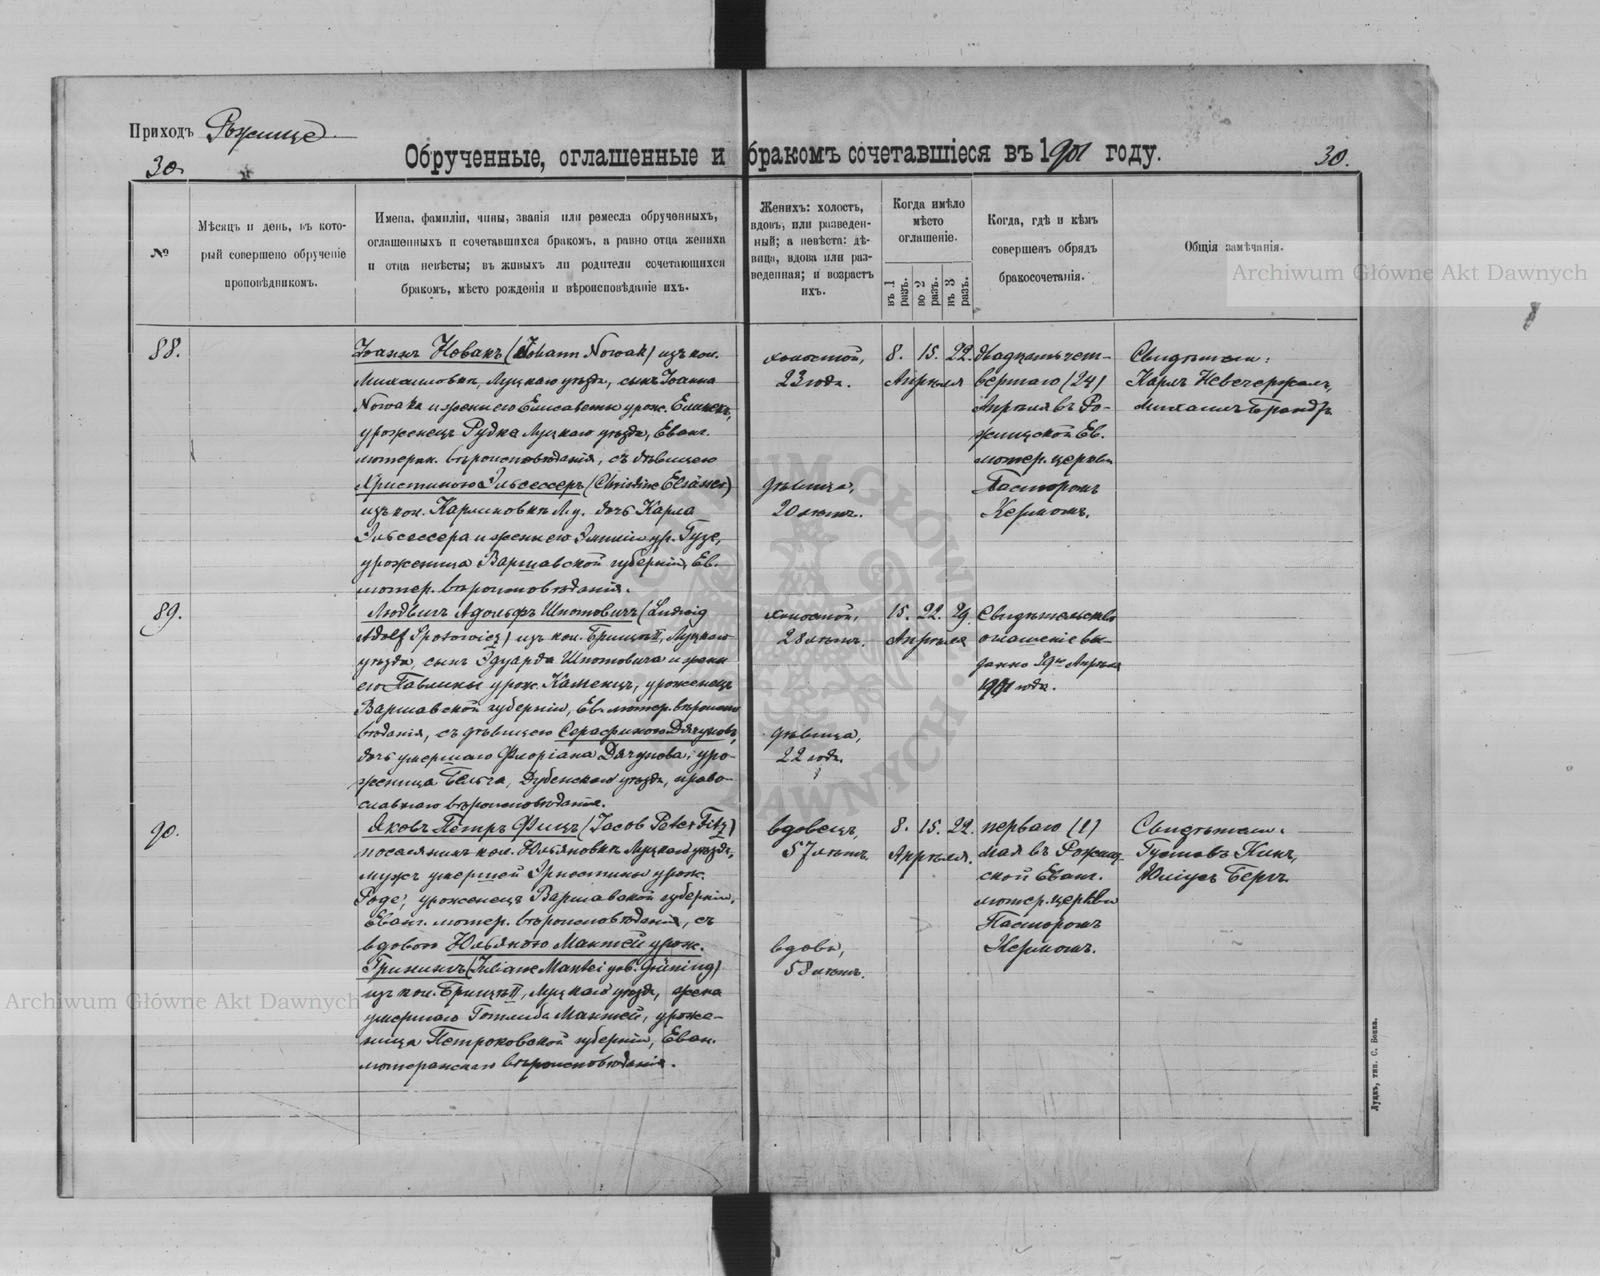 Приходъ Рожище
30.
Обрученные, оглашенные и бракомъ сочетавшіеся въ 1901 году.
30.
№
Мѣсяцъ и день, въ кото-
рый совершено обрученіе
проповѣдникомъ.
Имена, фамиліи, чины, званія или ремесла обрученныхъ,
оглашенныхъ и сочетавшихся бракомъ, а равно отца жениха
и отца невѣсты; въ живыхъ ли родители сочетающихся
бракомъ, мѣсто рожденія и вѣроисповѣданіе ихъ.
Женихъ: холостъ,
вдовъ, или разведен-
ный; а невѣста: дѣ-
вица, вдова или раз-
веденная; и возрастъ
ихъ.
Когда имѣло
мѣсто
оглашеніе.
въ 1 разъ.
во 2 разъ.
въ 3 разъ.
Когда, гдѣ и кѣмъ
совершенъ обрядъ
бракосочетанія.
Общія замѣчанія.
Archiwum Główne Akt Dawnych
88.
Іоаннъ Новакъ (Johann Nowak) изъ кол.
Михаиловки, Луцкаго уѣзда, сынъ Іоанна
Новака и жены его Елисаветы урож.
уроженецъ Рудка Луцкаго уѣзда, Еванг.
лютеран. вѣроисповѣданія, съ дѣвицею
Христиною Эльсессеръ (Christine Elsässer)
изъ кол. Кармановки Л.у. дочь Карла
Эльсессера и жены его Эмиліи ур. Гузе,
уроженица Варшавской губерніи, Ев.
лютер. вѣроисповѣданія.
холостой,
23 года.
дѣвица,
20 лѣтъ.
8. 15. 22.
Апрѣля
двадцать чет-
вертаго (24)
Апрѣля въ Ро-
жищской Ев.
лютер. церкви
Пасторомъ
Керномъ.
Свидѣтели:
Карлъ
Михаилъ Брандъ
89.
Людвигъ Адольфъ Шпотовичъ (Ludwig
Adolf Spotowicz) изъ кол. Брищъ II, Луцкаго
уѣзда, сынъ Эдуарда Шпотовича и жены
его Павлины урож. Каменцъ, уроженецъ
Варшавской губерніи, Ев. лютер. вѣроиспо-
вѣданія, съ дѣвицею Серафимою Дячуковъ,
дочь умершаго Флоріана Дячукова, уро-
женица Дубенскаго уѣзда, право-
славнаго вѣроисповѣданія.
холостой,
28 лѣтъ.
дѣвица,
22 года.
15. 22. 29.
Апрѣля
Свидѣтельство
оглашенія вы-
дано 29го Апрѣля
1901 года.
90.
Яковъ Петръ Фицъ (Jacob Peter Fitz)
поселянинъ кол. Юльяновки Луцкаго уѣзда,
мужъ умершей Эрнестины урож.
Роде, уроженецъ Варшавской губерніи,
Еванг. лютер. вѣроисповѣданія, съ
вдовою Юльяною Мантей урож.
Грининъ (Juliane Mantei geb. Grüning)
изъ кол. Брищъ II, Луцкаго уѣзда, жена
умершаго Готлиба Мантей, уроже-
ница Петроковской губерніи, Еван.
лютеранскаго вѣроисповѣданія.
вдовецъ,
57 лѣтъ.
вдова,
58 лѣтъ.
8. 15. 22.
Апрѣля.
перваго (1)
Мая въ Рожищ-
ской Еванг.
лютер. церкви
Пасторомъ
Керномъ.
Свидѣтели:
Густавъ Кинъ,
Юліусъ Бергъ.
Archiwum Główne Akt Dawnych
Луцкъ, тип. С. Бонка.
ARCHIWUM GŁÓWNE AKT DAWNYCH